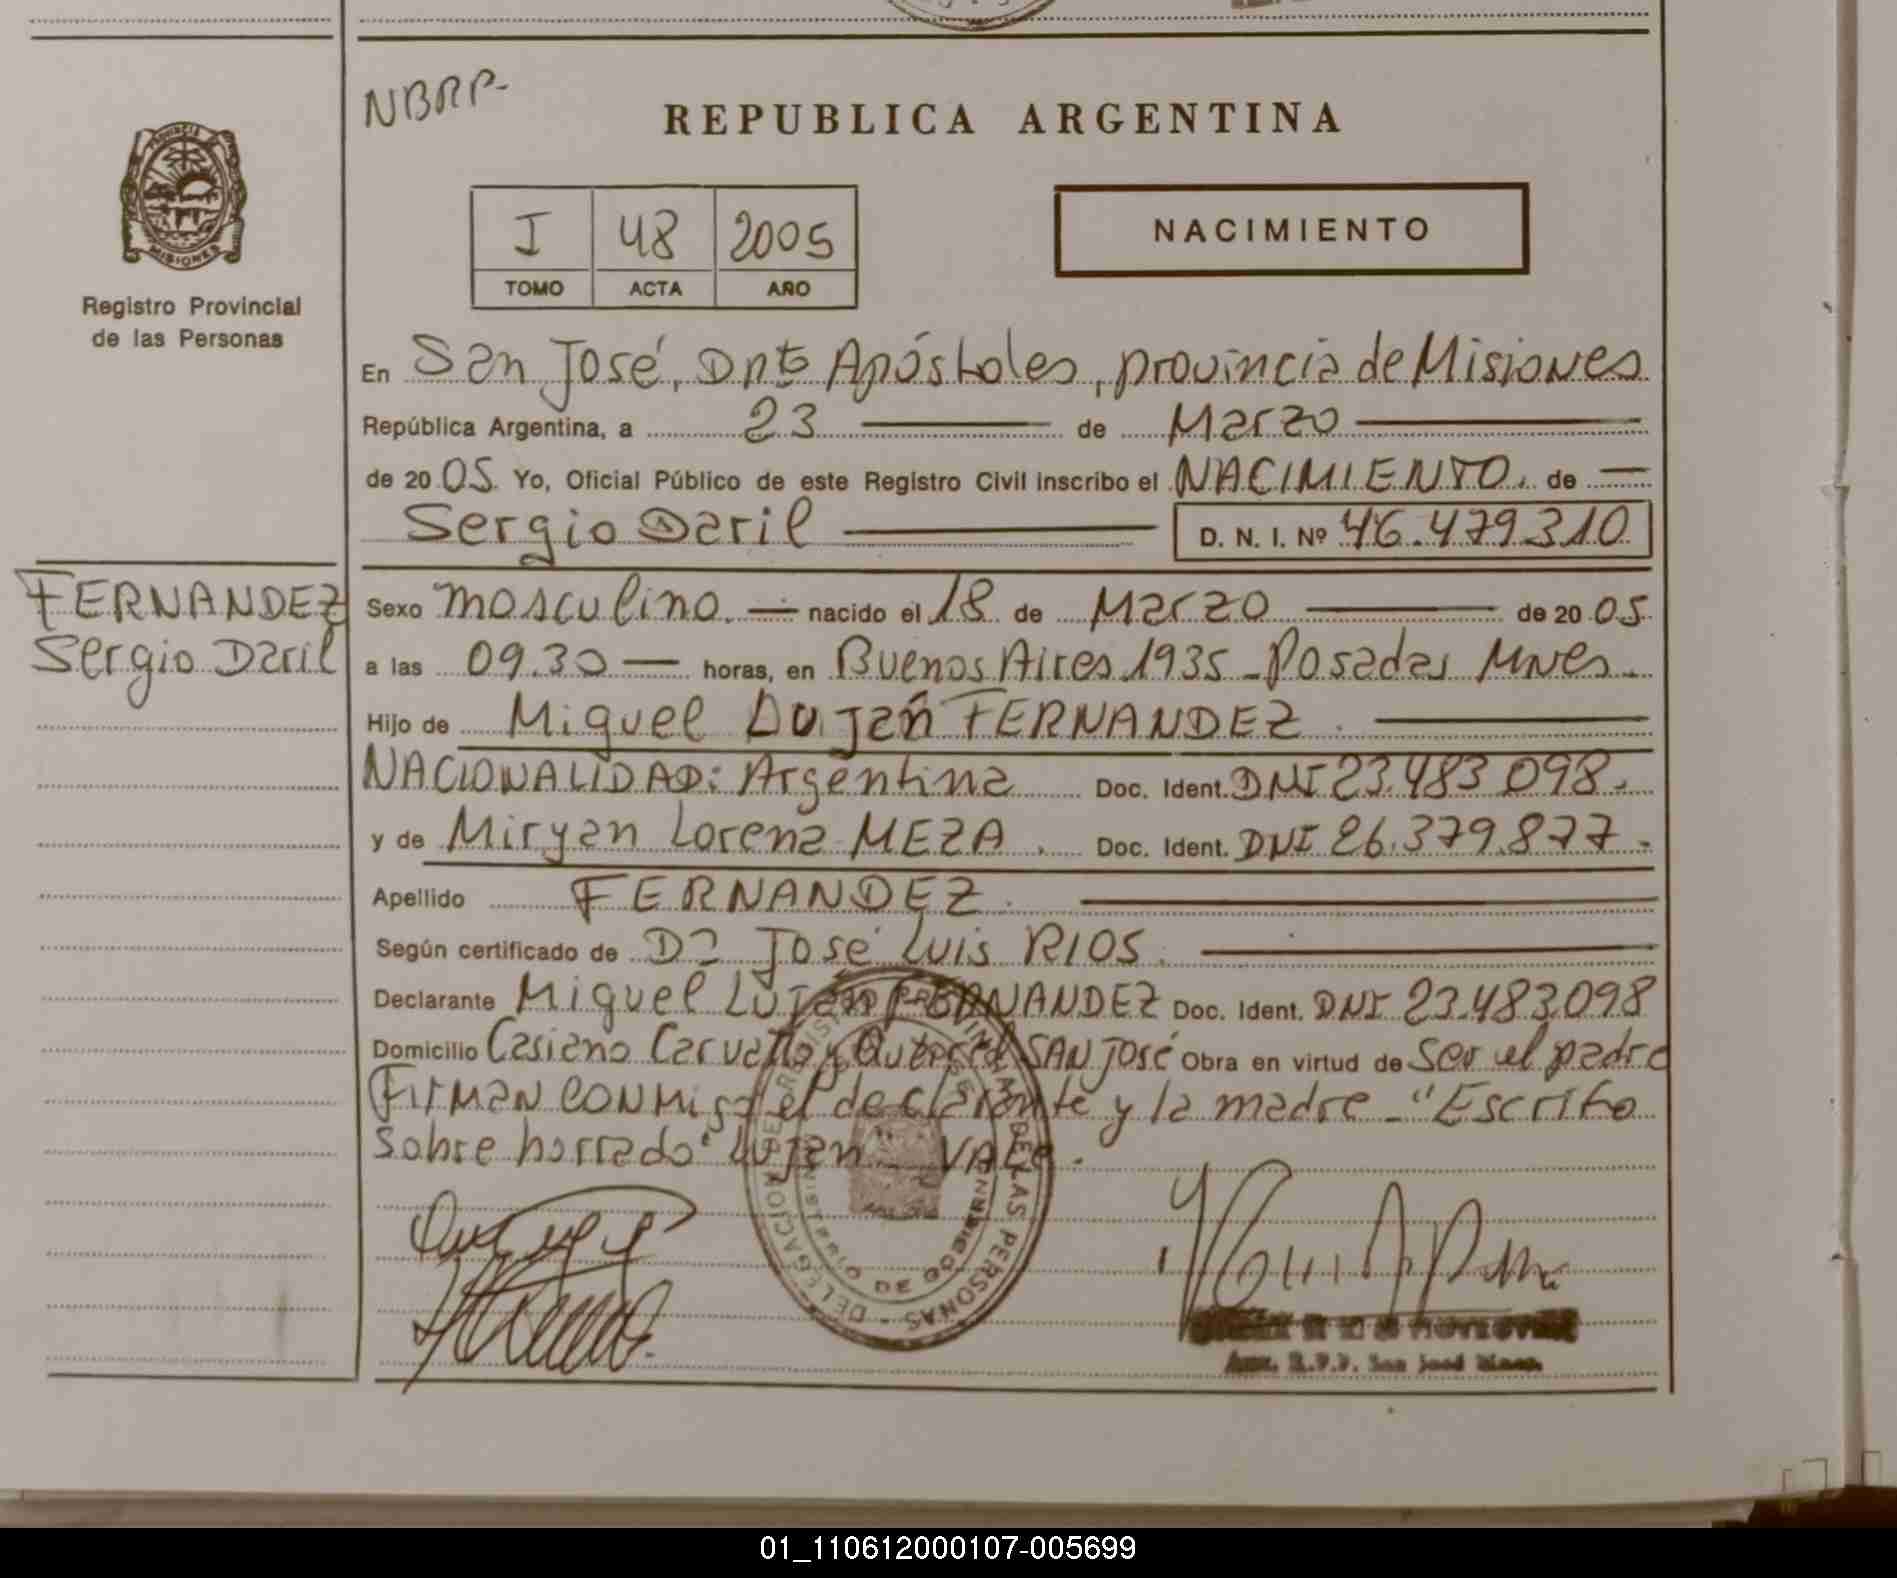 NBRP-
REPUBLICA ARGENTINA
PROVINCIA
MISIONES
Registro Provincial
de las Personas
I 48 2005
TOMO ACTA AÑO
NACIMIENTO
En San José, Dpto Apóstoles, provincia de Misiones
República Argentina, a 23 de Marzo
de 2005. Yo, Oficial Público de este Registro Civil inscribo el NACIMIENTO. de
Sergio Daril D. N. I. Nº 46.479310
FERNANDEZ
Sergio Daril
Sexo masculino. nacido el 18 de Marzo de 2005.
a las 09.30 horas, en Buenos Aires 1935 - Posadas Mnes.
Hijo de Miguel Luján FERNANDEZ.
NACIONALIDAD: Argentina Doc. Ident. DNI 23.483 098.
y de Miryan Lorena MEZA. Doc. Ident. DNI 26.379.877.
Apellido FERNANDEZ.
Según certificado de José Luis RIOS.
Declarante Miguel Luján FERNANDEZ Doc. Ident. DNI 23.483.098
Domicilio Casiano Carvallo y SAN JOSÉ Obra en virtud de Ser el padre
Firman conmigo el declarante y la madre - "Escrito
sobre borrado" Lujan VALE.
DELEGACION REGISTRO PROVINCIAL DE LAS PERSONAS
Aux. R.P.P. San José Mnes.
01_110612000107-005699